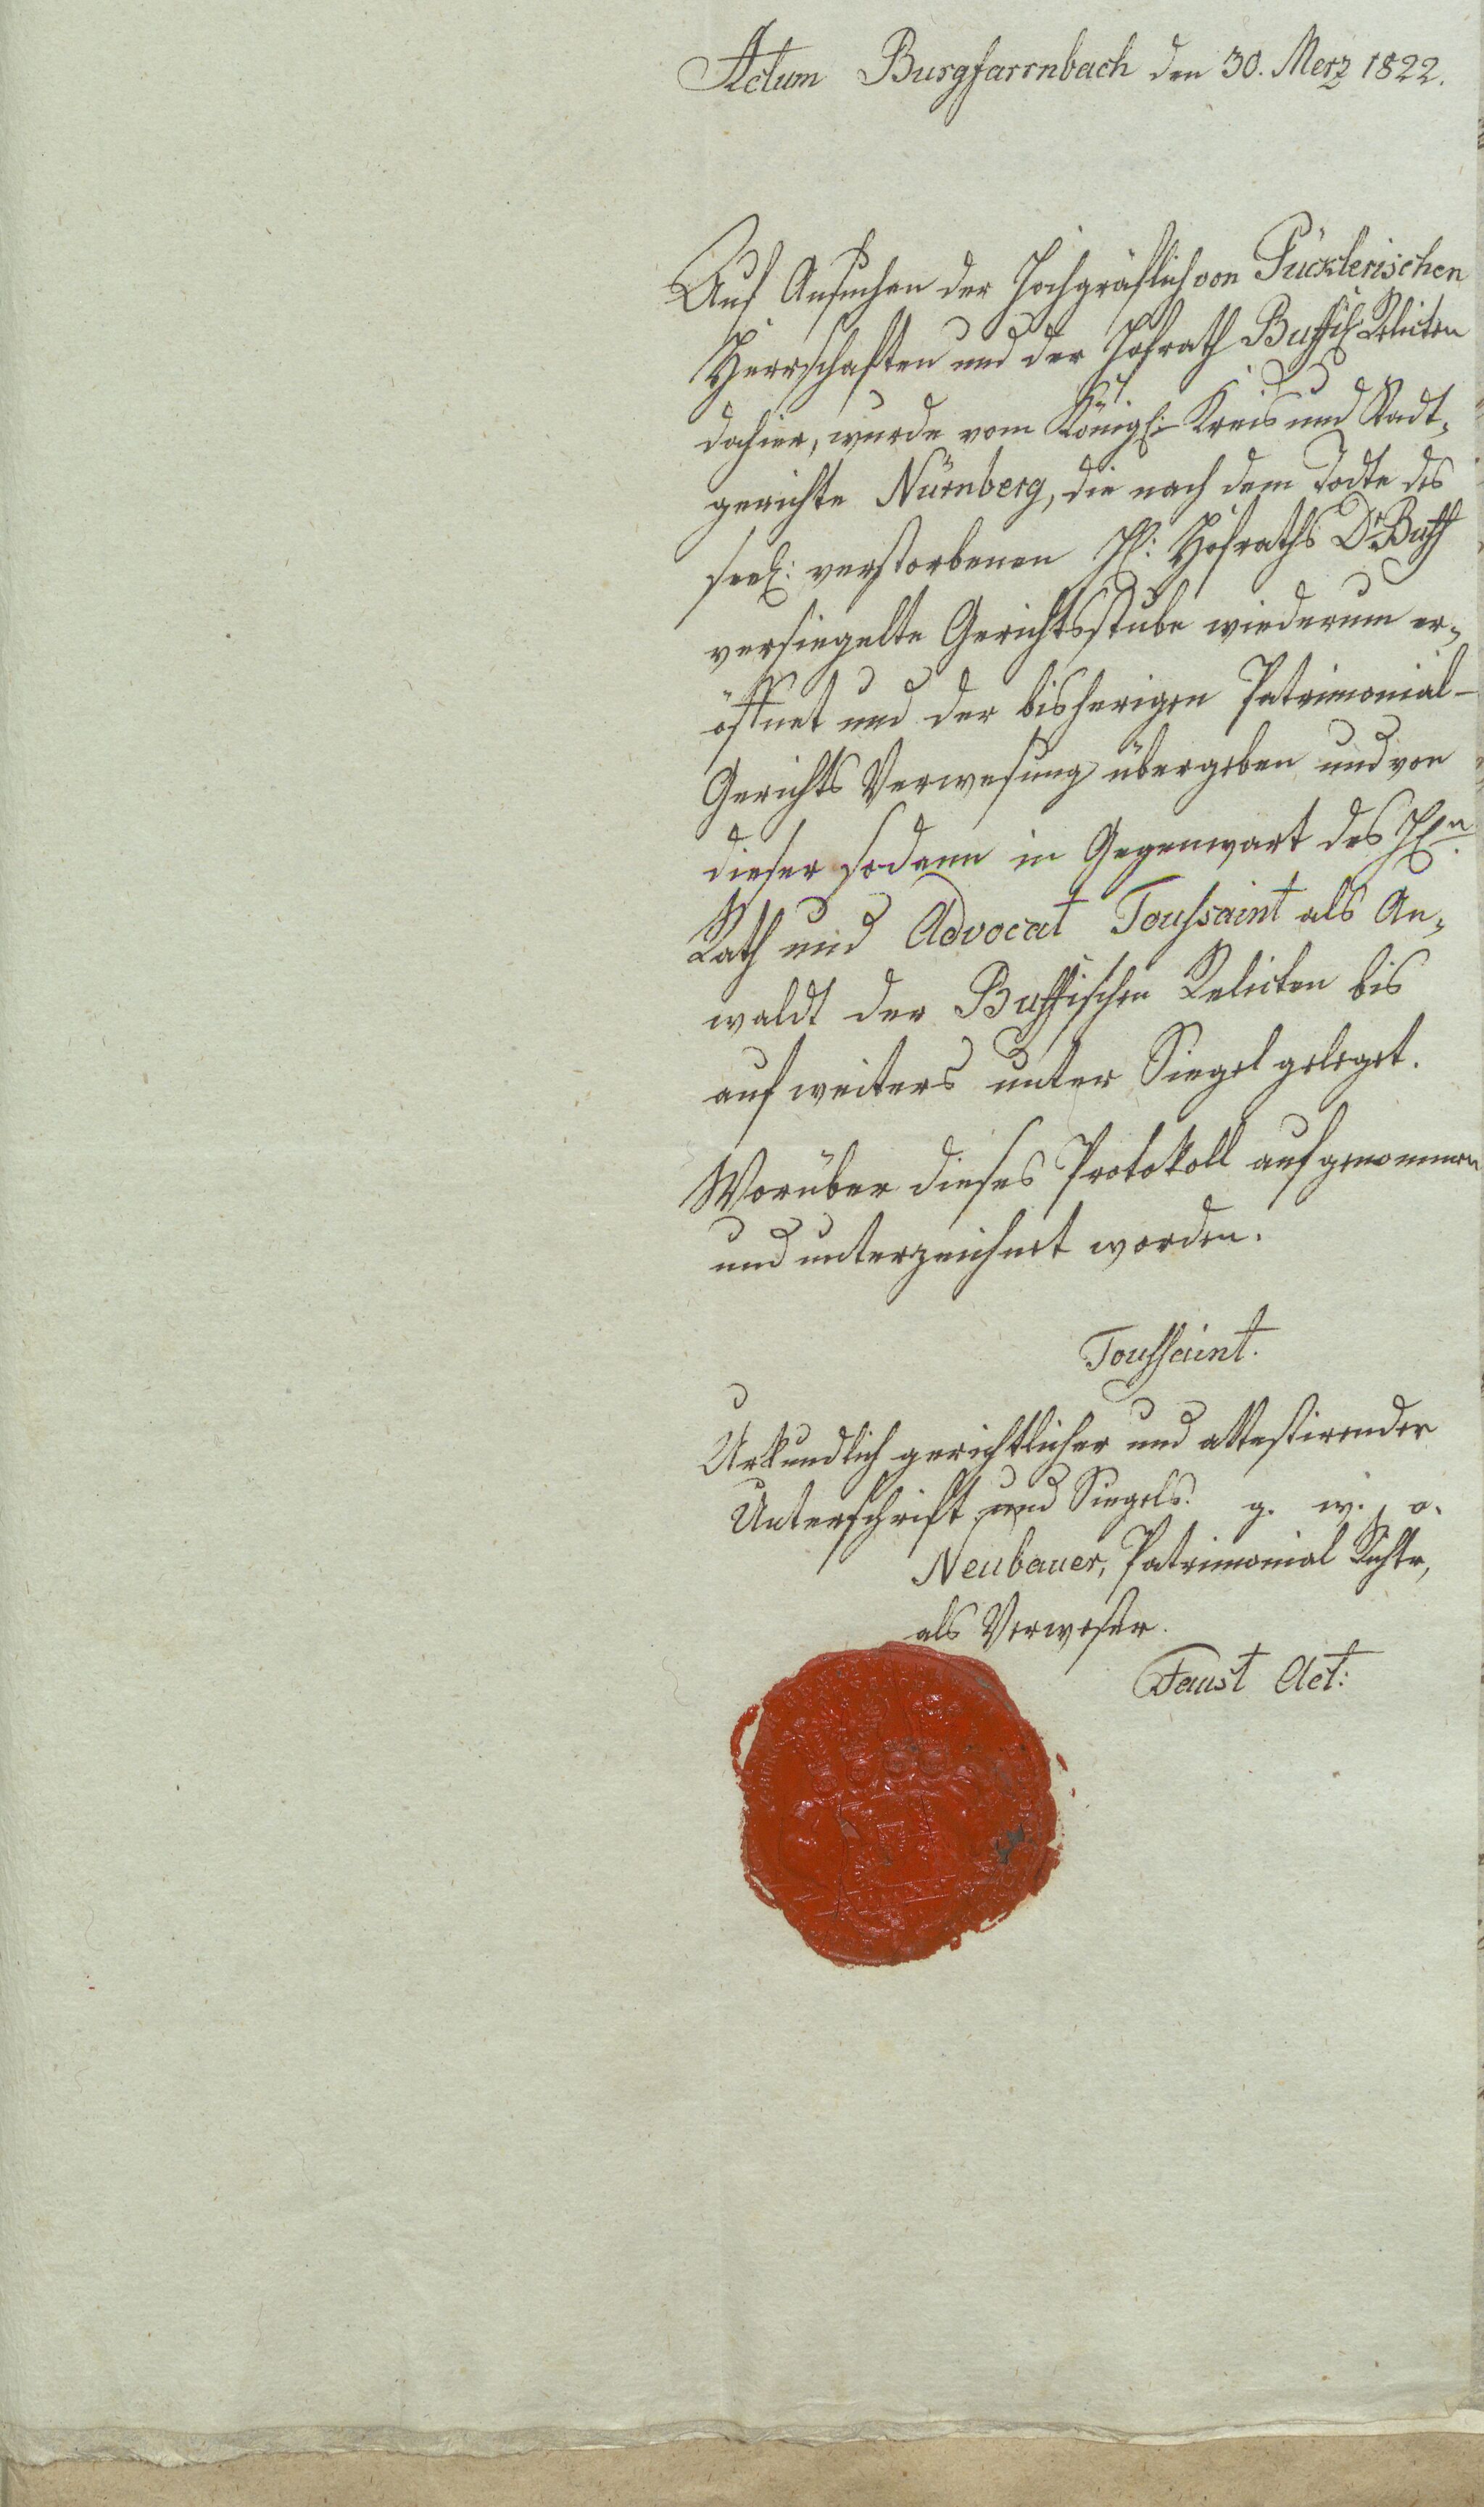 Actum Burgfarrnbach den 30. Merz 1822.
Auf Ansuchen der Hochgräflich von Pücklerischen
Herrschaften und der Hofrath Buffisch: Relicten
dahier, wurde vom Königl: Kreis und Stadt-
gerichte Nürnberg, die nach dem Todte des
seel: verstorbenen H: Hofraths Dr. Buff
versiegelte Gerichtsstube wiederum er-
öffnet und der bisherigen Patrimonial-
Gerichts Verwesung übergeben und von
dieser sodann in Gegenwart des Hn.
Rath und Advocat Toussaint als An-
waldt der Buffischen Relicten bis
auf weiters unter Siegel geleget.
Worüber dieses Protokoll aufgenommen
und unterzeichnet worden.
Toussaint.
Urkundlich gerichtlicher und attestirender
Unterschrift und Siegels. g. w. o.
Neubauer, Patrimonial Richter,
als Verweser.
Faust Act: